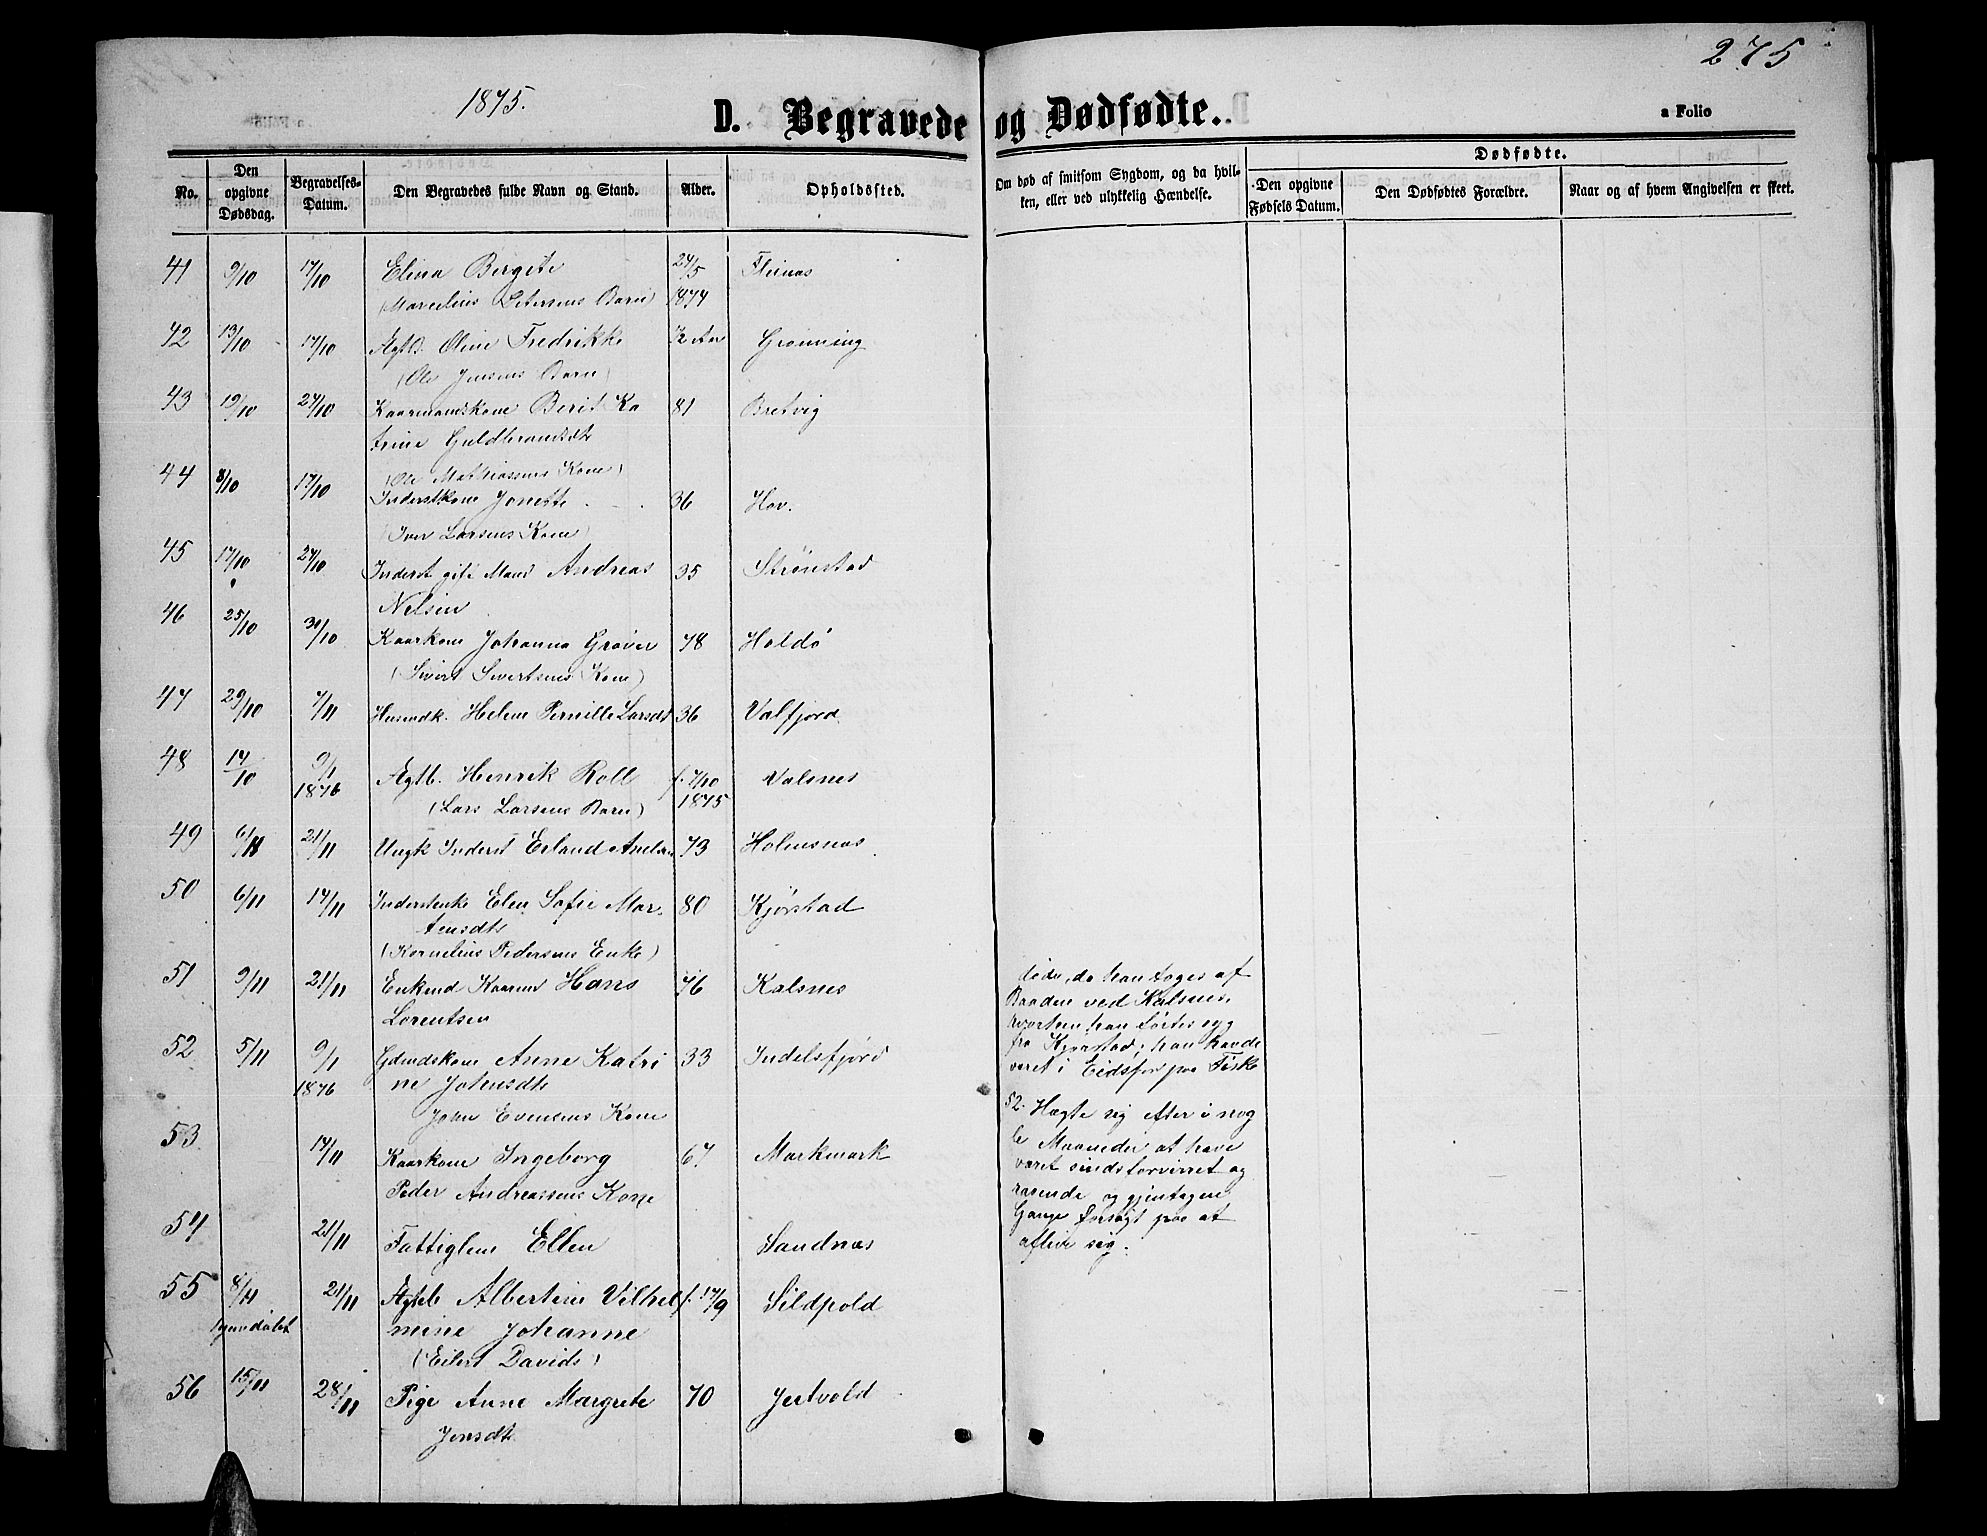 275
1875.
D. Begravede og Dødfødte.
a Folio
No.
Den opgivne Dødsdag.
Begravelses-Datum.
Den Begravedes fulde Navn og Stand.
Alder.
Opholdssted.
Om død af smitsom Sygdom, og da hvilken, eller ved ulykkelig Hændelse.
Dødfødte.
Den opgivne Fødsels Datum.
Den Dødfødtes Forældre.
Naar og af hvem Angivelsen er skeet.
41 9/10 17/10 Elina Bergite 24/5 1874
(Marcelius Petersens Barn)
42 13/10 17/10 Ægtb. Oline Fredrikke ½ Aar Grønning
(Ole Jensens Barn)
43 19/10 24/10 Kaarmandskone Berit Ka 81 Bretvig
trine Guldbrandsdt
(Ole Mathiassens Kone)
44 8/10 17/10 Inderstkone Jonette 36 Hov.
(Iver Larsens Kone)
45 17/10 24/10 Inderst gift Mand Andreas 35 Strønstad
Nelsen
46 25/10 30/10 Kaarkone Johanna Grøver 78 Holdø
(Sivert Sivertsens Kone)
47 29/10 7/11 Husmdk. Helene Pernille Larsdt 36 Valfjord
48 14/10 9/1 1876 Ægtb. Henrik Roll f. 7/10 1875 Valsnes
(Lars Larsens Barn)
49 6/11 21/11 Ungk Inderst Erland 73 Holmsnes
50 6/11 14/11 Inderstenke Elen Sofie Mar- 80 Kjørstad
tensdt
(Kornelius Pedersens Enke)
51 9/11 21/11 Enkemd Kaarm Hans 76 Kalsnes
Lorentsen
døde, da han toges af
Baaden ved Kalsnes,
hvorhen han førtes syg
fra Kjørstad; han havde
været i Eidsfor paa Fiske
52 5/11 9/1 1876 Gdmdskone Anne Katri 33 Indelsfjord
ne Johnsdt
John Evensens Kone
52. Hægte sig efter i nog
le Maaneder at have
været sindsforvirret og
rasende og gjentagne
Gange forsøgt paa at
aflive sig.
53 14/11 Kaarkone Ingeborg 67 Markmark
Peder Andreassens Kone
54 21/11 Fattiglem Ellen Sandnæs
55 8/11 21/11 Ægteb Albertine Vilhel f. 17/9 Sildpold
mine Johanne
(Eilert Davids)
56 15/11 28/11 Pige Anne Margrete 70 Jertvold
Jensdt